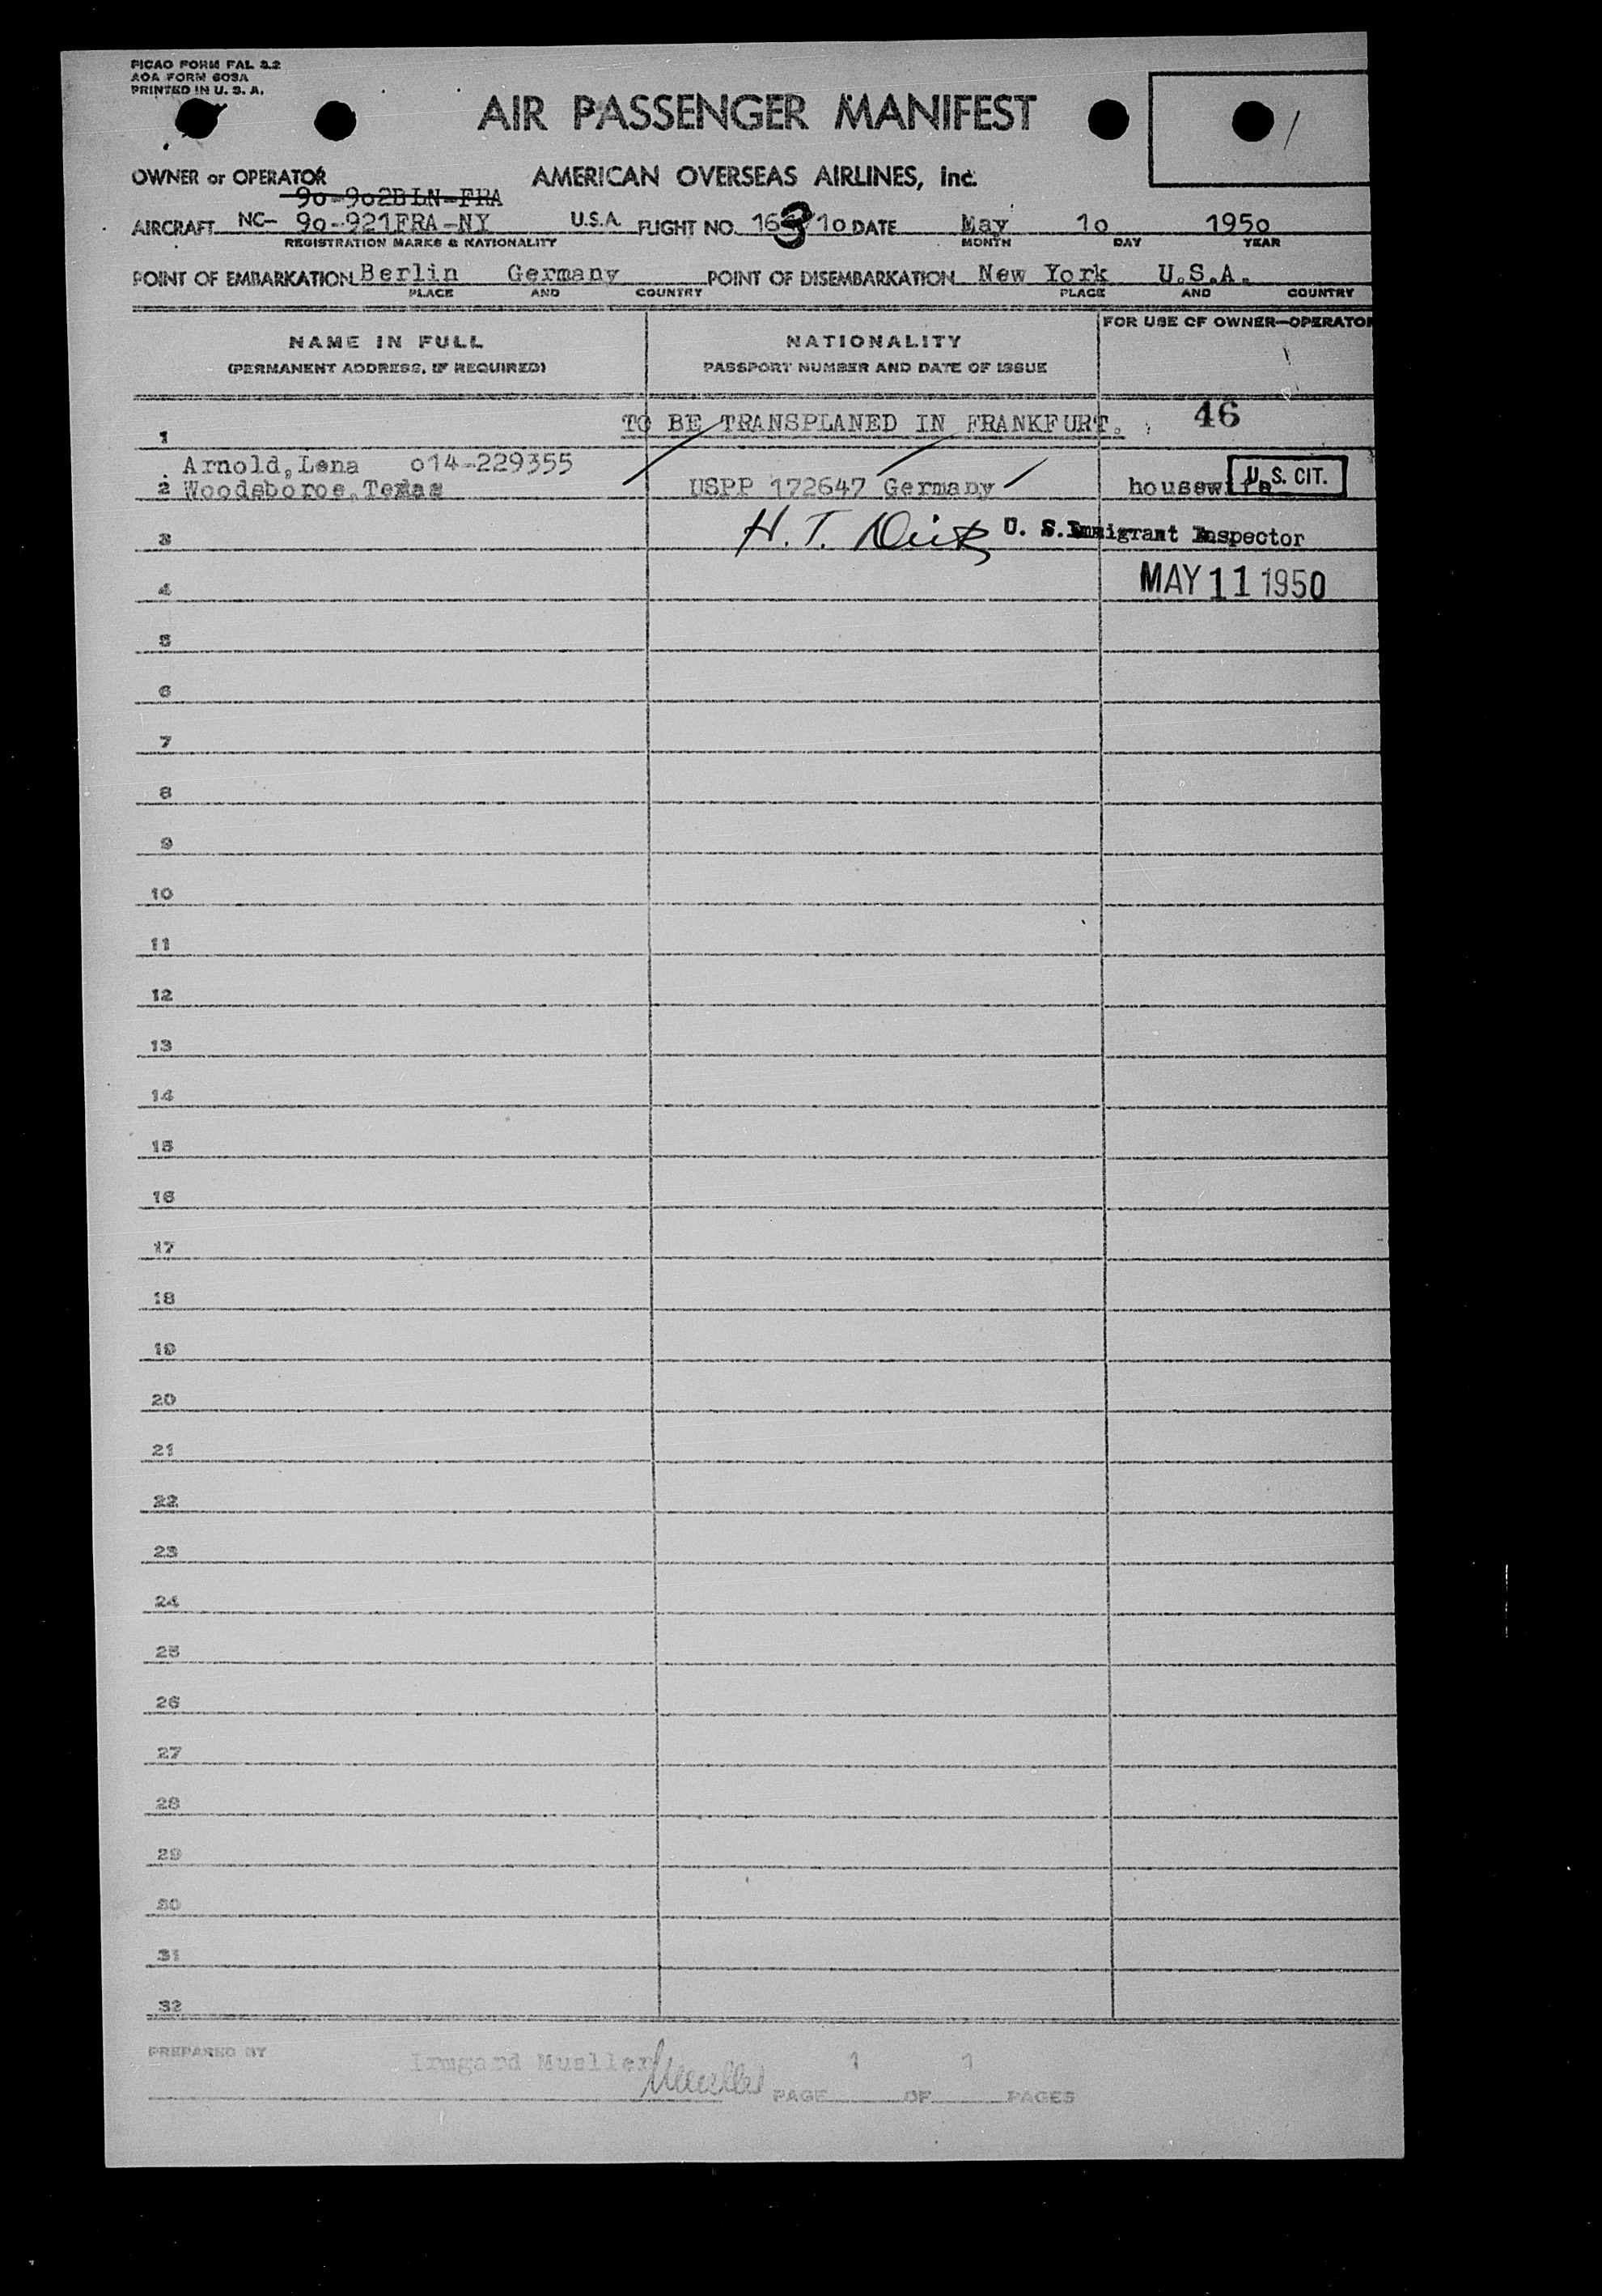 PICAO FORM FAL 3.2
AOA FORM 603A
PRINTED IN U. S. A.
AIR PASSENGER MANIFEST
/
OWNER or OPERATOR AMERICAN OVERSEAS AIRLINES, Inc.
90-902BLN-FRA
AIRCRAFT NC- 90-921FRA-NY U.S.A. FLIGHT NO. 163/10 DATE May 10 1950
REGISTRATION MARKS & NATIONALITY MONTH DAY YEAR
POINT OF EMBARKATION Berlin Germany POINT OF DISEMBARKATION New York U.S.A.
PLACE AND COUNTRY PLACE AND COUNTRY
NAME IN FULL
(PERMANENT ADDRESS, IF REQUIRED)
NATIONALITY
PASSPORT NUMBER AND DATE OF ISSUE
FOR USE OF OWNER—OPERATOR
1 TO BE TRANSPLANED IN FRANKFURT. 46
Arnold,Lena 014-229355
2 Woodsboroe,Texas USPP 172647 Germany housewife U.S. CIT.
3 H. T. U. S. Immigrant Inspector
4 MAY 11 1950
5
6
7
8
9
10
11
12
13
14
15
16
17
18
19
20
21
22
23
24
25
26
27
28
29
30
31
32
PREPARED BY Irmgard Mueller Mueller
PAGE 1 OF 1 PAGES